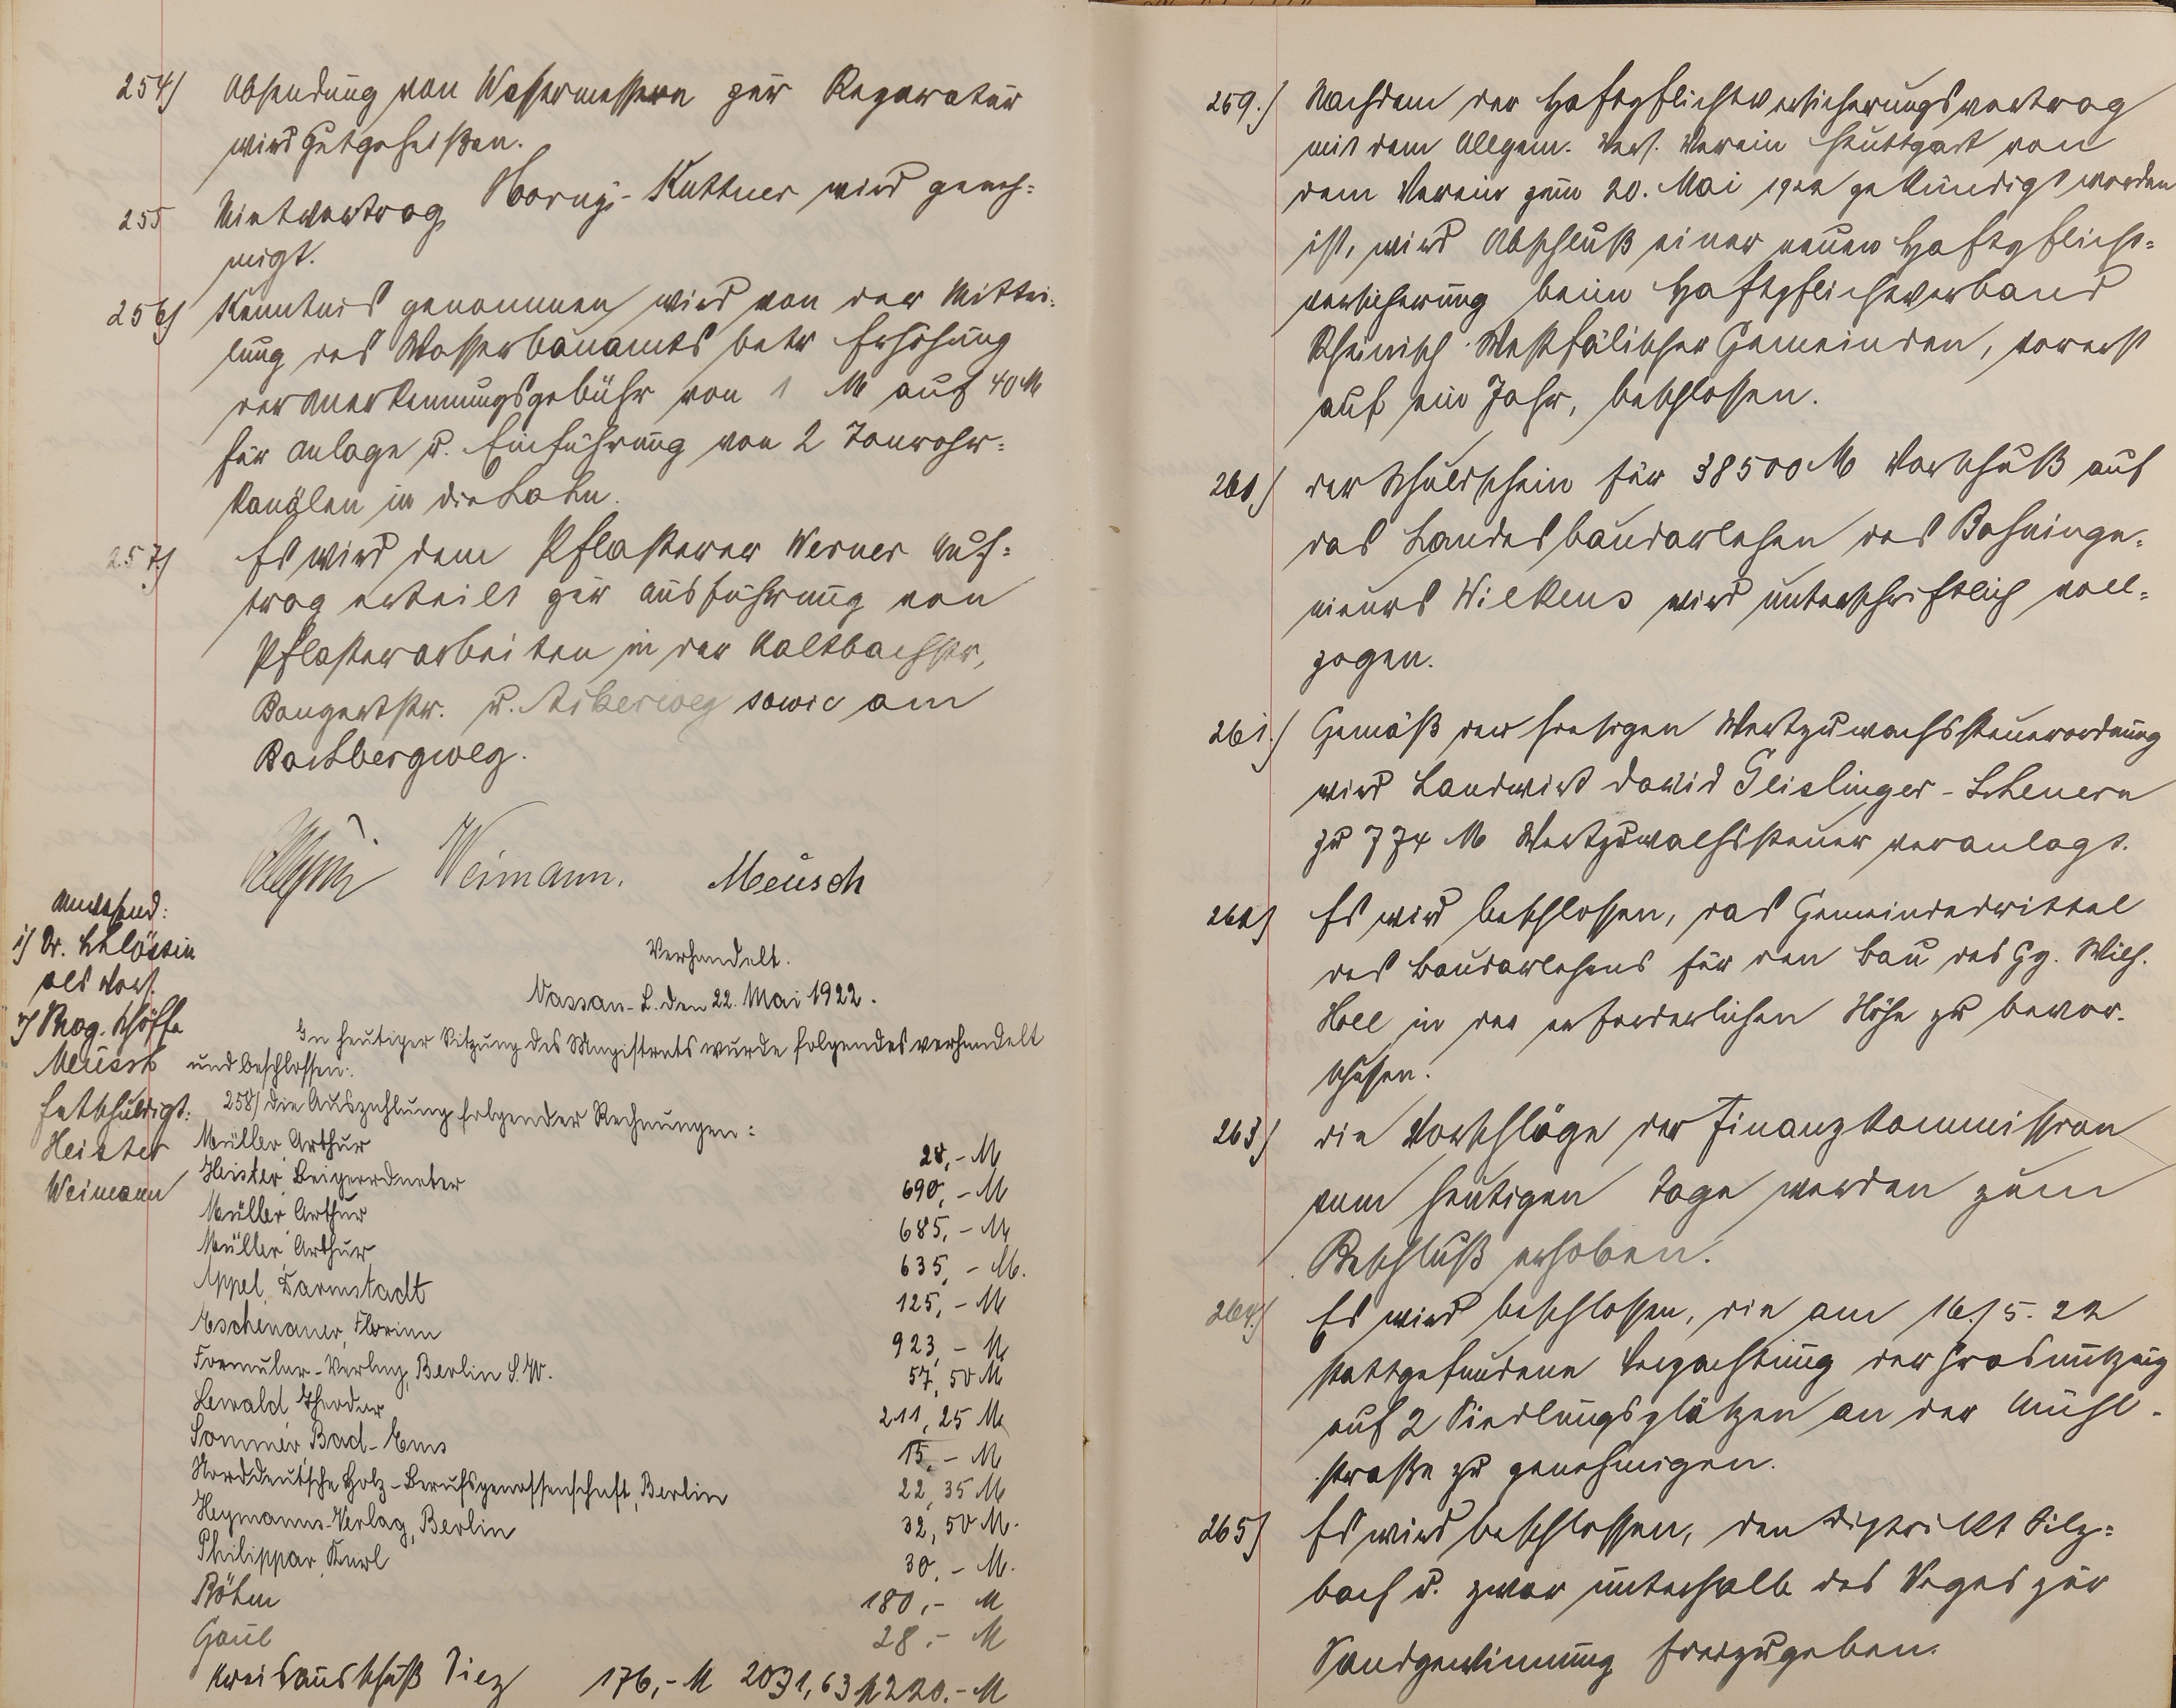 254) Absendung von Wassermessern zur Reparatur
wird gutgeheißen.
255 Mietvertrag Horny-Kuttner wird geneh=
migt.
256) Kenntnis genommen wird von der Mittei-
lung des Wasserbauamts betr Erhöhung
der Anerkennungsgebühr von 1 M auf 40 M
für Anlage u. Einführung von 2 Tonrohr=
kanälen in die Lahn.
257) Es wird dem Pflasterer Werner Auf=
trag erteilt zur Ausführung von
Pflasterarbeiten in der Kaltbachstr,
Bongertstr. u. sowie am
Bachbergweg.
Weimann. Meusch
Anwesend:
1) Dr. Schlössin
als Vors.
2) Mag. Schöffe
Meusch
Entschuldigt:
Heister
Weimann
Verhandelt.
Nassau-L. den 22. Mai 1922.
In heutiger Sitzung des Magistrats wurde folgendes verhandelt
und beschlossen:
258) die Auszahlung folgender Rechnungen:
Müller, Arthur 28,- M
Heister, Beigeordneter 690,- M
Müller, Arthur 685,- M
Müller, Arthur 635,- M.
Appel, Darmstadt 125,- M
Eschenauer, Florian 923,- M
Formular-Verlag, Berlin S.W. 57,50 M
Lewald Theodor 211,25 M
Sommer, Bad-Ems 15,- M
Norddeutsche Holz-Berufsgenossenschaft, Berlin 22,35 M
Heymanns-Verlag, Berlin 32,50 M.
Philippar, Karl 30,- M.
Böhm 180,- M
Gaul 28,- M
Kreisausschuß Diez 176,- M 2031,63 M 220.- M
259.) Nachdem der Haftpflichtversicherungsvertrag
mit dem Allgem. Vers. Verein Stuttgart von
dem Verein zum 20. Mai 1922 gekündigt worden
ist, wird Abschluß einer neuen Haftpflicht=
versicherung beim Haftpflichtverband
Rheinisch-Westfälischer Gemeinden, vorerst
auf ein Jahr, beschlossen.
260) der Schuldschein für 38500 M Vorschuß auf
das Landesbaudarlehen des Bahninge-
nieurs Wilkens wird unterschriftlich voll=
zogen.
261.) Gemäß der hiesigen Wertzuwachssteuerordnung
wird Landwirt David Geislinger-Scheuern
zu 774 M Wertzuwachssteuer veranlagt.
262) Es wird beschlossen, das Gemeindedrittel
des Baudarlehens für den Bau des Gg. Wilh.
Holl in der erforderlichen Höhe zu bevor-
schussen.
263) die Vorschläge der Finanzkommission
vom heutigen Tage werden zum
Beschluß erhoben.
264.) Es wird beschlossen, die am 16./5. 22
stattgefundene Verpachtung der Grasnutzung
auf 2 Siedlungsplätzen an der Mühl-
straße zu genehmigen.
265) Es wird beschlossen, den Distrikt Silz=
bach u. zwar unterhalb des Weges zur
Sandgewinnung freizugeben.